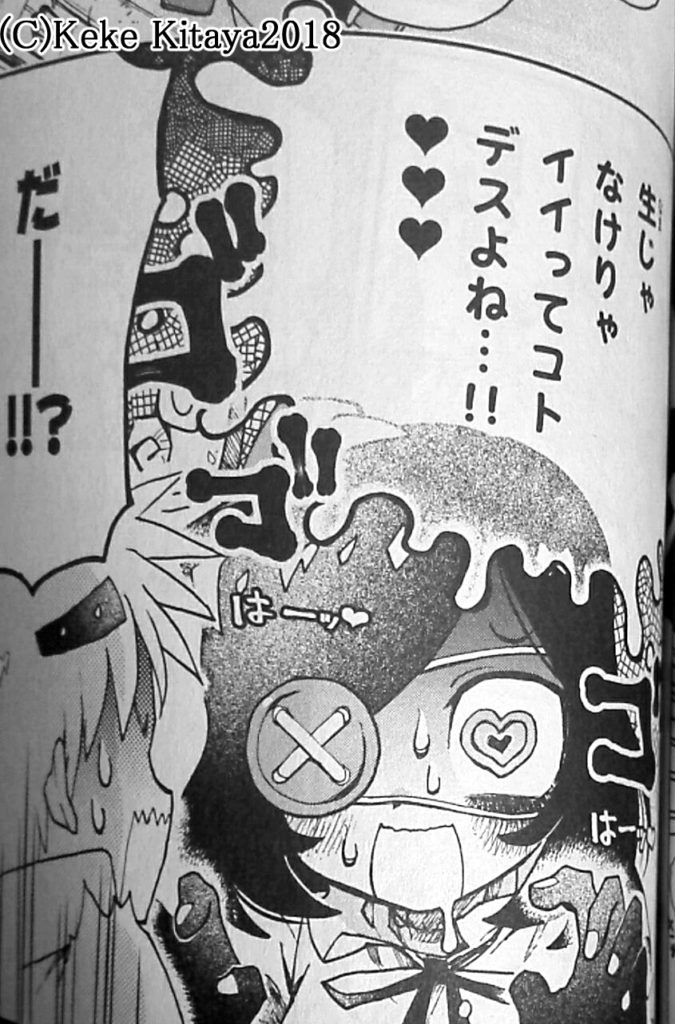 (C)Keke Kitaya2018
生じゃ
なけりゃ
イイってコト
デスよね…!!
♥♥♥
だー!!?
はーッ♥
はー